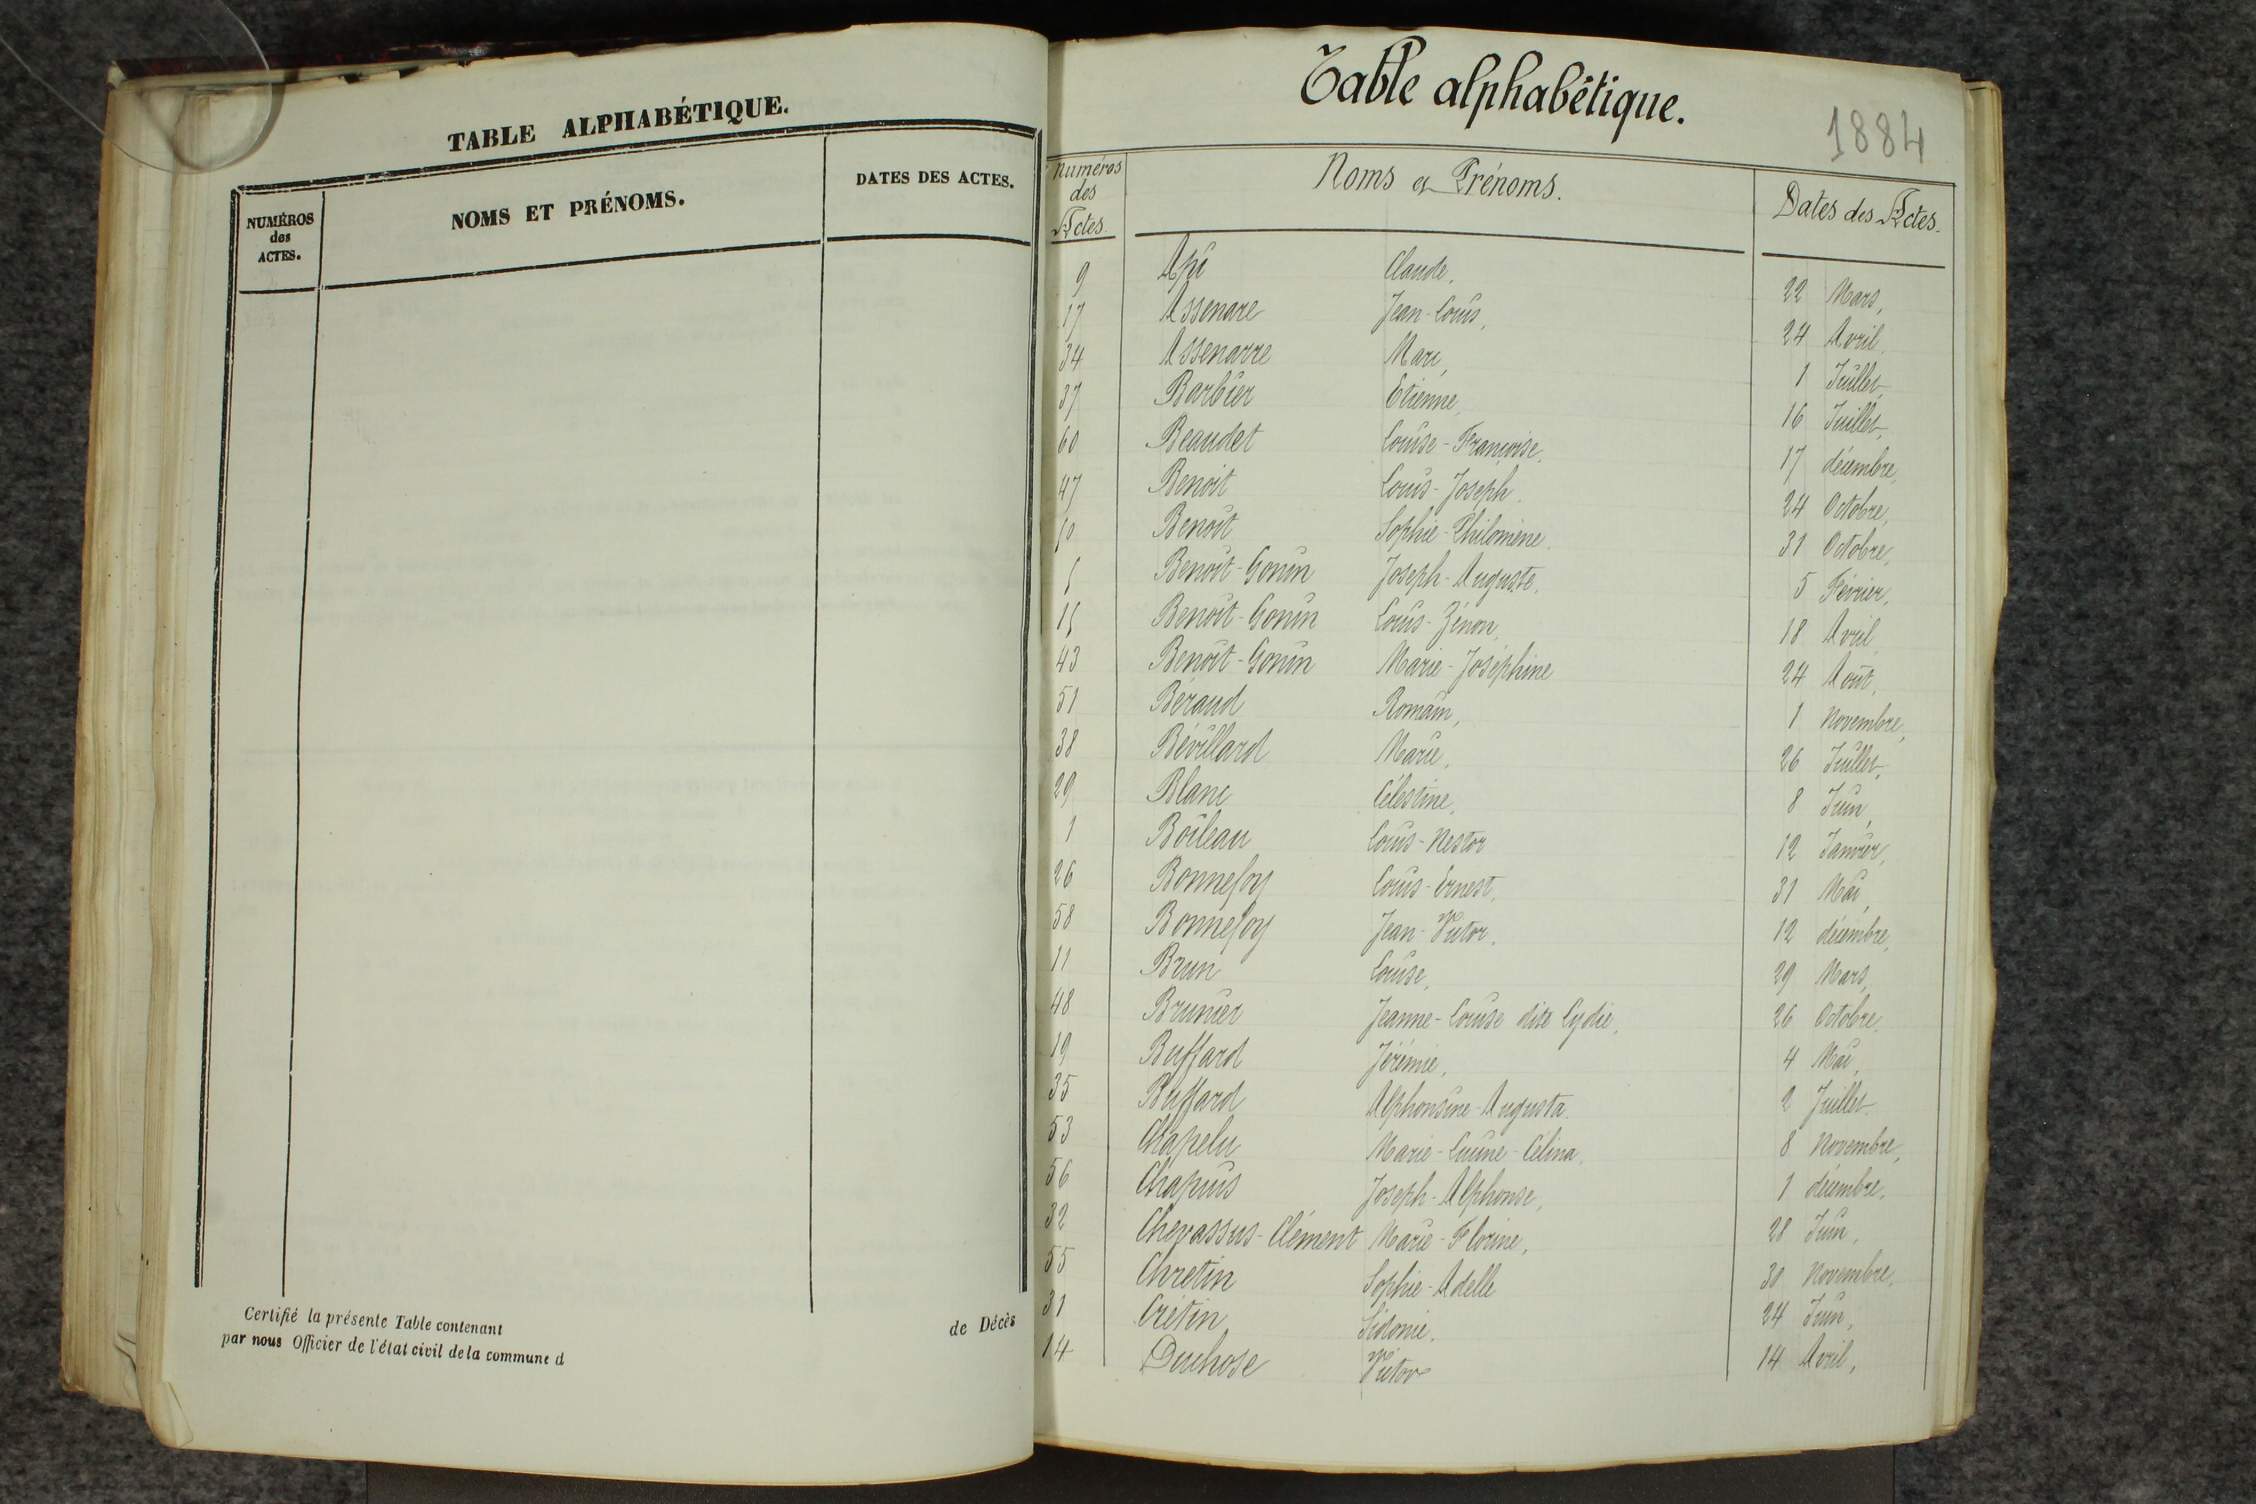 TABLE ALPHABÉTIQUE.
NUMÉROS des ACTES.
NOMS ET PRÉNOMS.
DATES DES ACTES.
Certifié la présente Table contenant de Décès
par nous Officier de l'état civil de la commune d
Table alphabétique.
1884
Numéros des Actes.
Noms et Prénoms.
Dates des Actes.
9 Api Claude, 22 Mars,
17 Assenare Jean-Louis, 24 Avril
34 Assenarre Marc, 1 Juillet,
37 Barbier Etienne, 16 Juillet,
60 Beaudet Louise-Françoise. 17 décembre,
47 Benoit Louis-Joseph. 24 Octobre,
50 Benoît Sophie-Philomène. 31 Octobre,
5 Benoît-Gonin Joseph-Auguste, 5 Février,
15 Benoît-Gonin Louis-Zénon, 18 Avril
43 Benoît-Gonin Marie-Joséphine 24 Août,
51 Béraud Romain, 1 Novembre,
38 Bévillard Marie, 26 Juillet,
29 Blanc Célestine, 8 Juin,
1 Boileau Louis-Nestor 12 Janvier,
26 Bonnefoy Louis-Ernest, 31 Mai,
58 Bonnefoy Jean-Victor. 12 décembre,
11 Brun Louise, 29 Mars,
48 Brunier Jeanne-Louise dite Lydie, 26 Octobre.
19 Buffard Jérémie, 4 Mai,
35 Buffard Alphonsine-Augusta. 2 Juillet
53 Chapelu Marie-Lucine-Célina, 8 Novembre,
56 Chapuis Joseph-Alphonse, 1 décembre.
32 Chevassus-Clément Marie-Florine, 28 Juin,
55 Chrétin Sophie-Adelle 30 Novembre.
31 Crétin Sidonie. 24 Juin,
14 Duchose Victor 14 Avril,